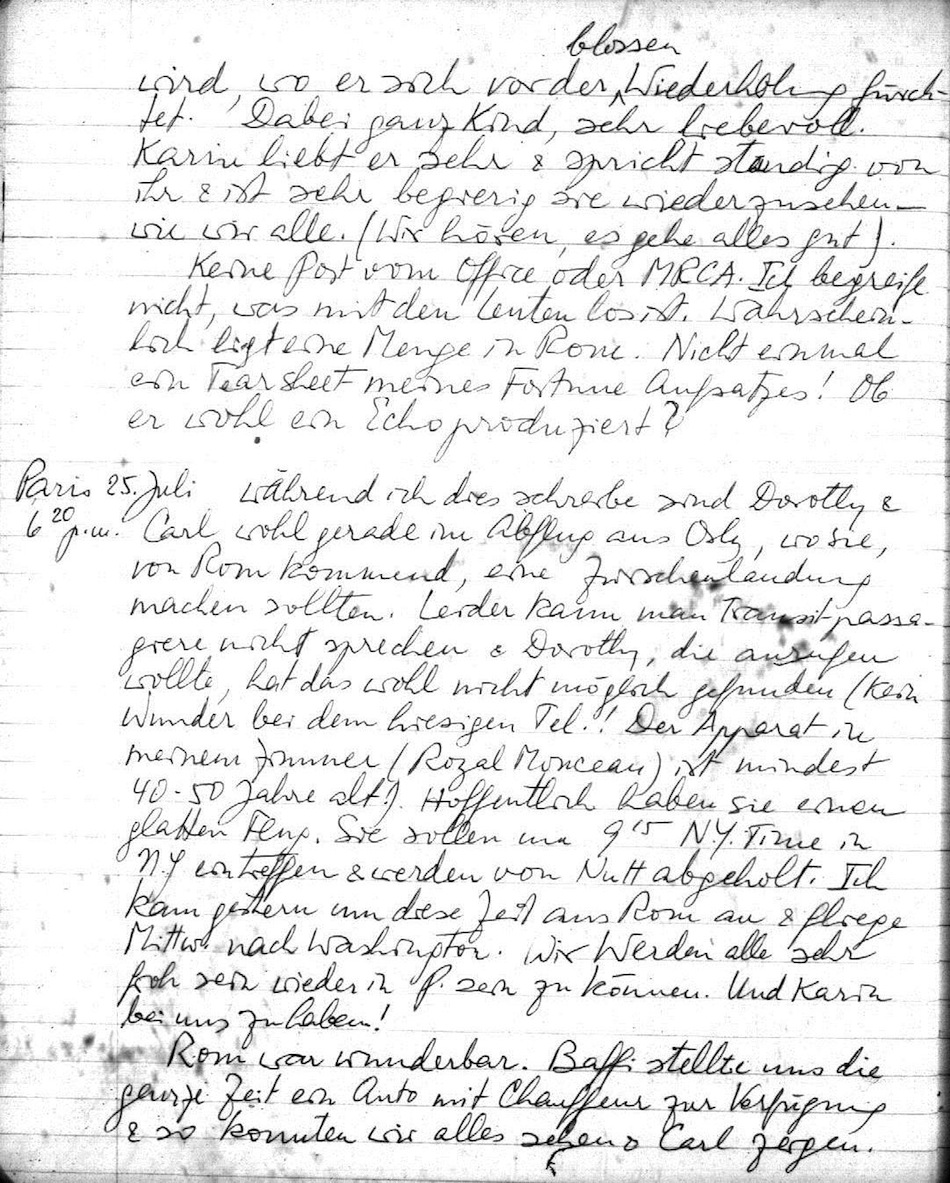 blossen
wird, wo er sich vor der Wiederholung fürch-
tet. Dabei ganz Kind, sehr liebevoll.
Karin liebt er sehr & spricht ständig von
ihr & ist sehr begierig sie wiederzusehen –
wie wir alle. (Wir hören, es gehe alles gut).
Keine Post vom Office oder MRCA. Ich begreife
nicht, was mit den Leuten los ist. Wahrschein-
lich ligt eine Menge in Rom. Nicht einmal
ein Tearsheet meines Fortune Aufsatzes! Ob
er wohl ein Echo produziert?
Paris 25. Juli während ich dies schreibe sind Dorothy &
6²⁰ p.m. Carl wohl gerade im Abflug aus Oslo, wo sie,
von Rom kommend, eine Zwischenlandung
machen sollten. Leider kann man Transitpassa-
giere nicht sprechen & Dorothy, die anrufen
wollte, hat das wohl nicht möglich gefunden (kein
Wunder bei dem hiesigen Tel.! Der Apparat in
meinem Zimmer (Royal Monceau) ist mindest
40-50 Jahre alt!). Hoffentlich haben sie einen
glatten Flug. Sie sollen um 9¹⁵ N.Y. Time in
N.Y eintreffen & werden von Nutt abgeholt. Ich
kam gestern um diese Zeit aus Rom an & fliege
Mittw. nach Washington. Wir Werden alle sehr
froh sein wieder in P. sein zu können. Und Karin
bei uns zu haben!
Rom war wunderbar. Baffi stellte uns die
ganze Zeit ein Auto mit Chauffeur zur Verfügung
& so konnten wir alles sehen & Carl zeigen.